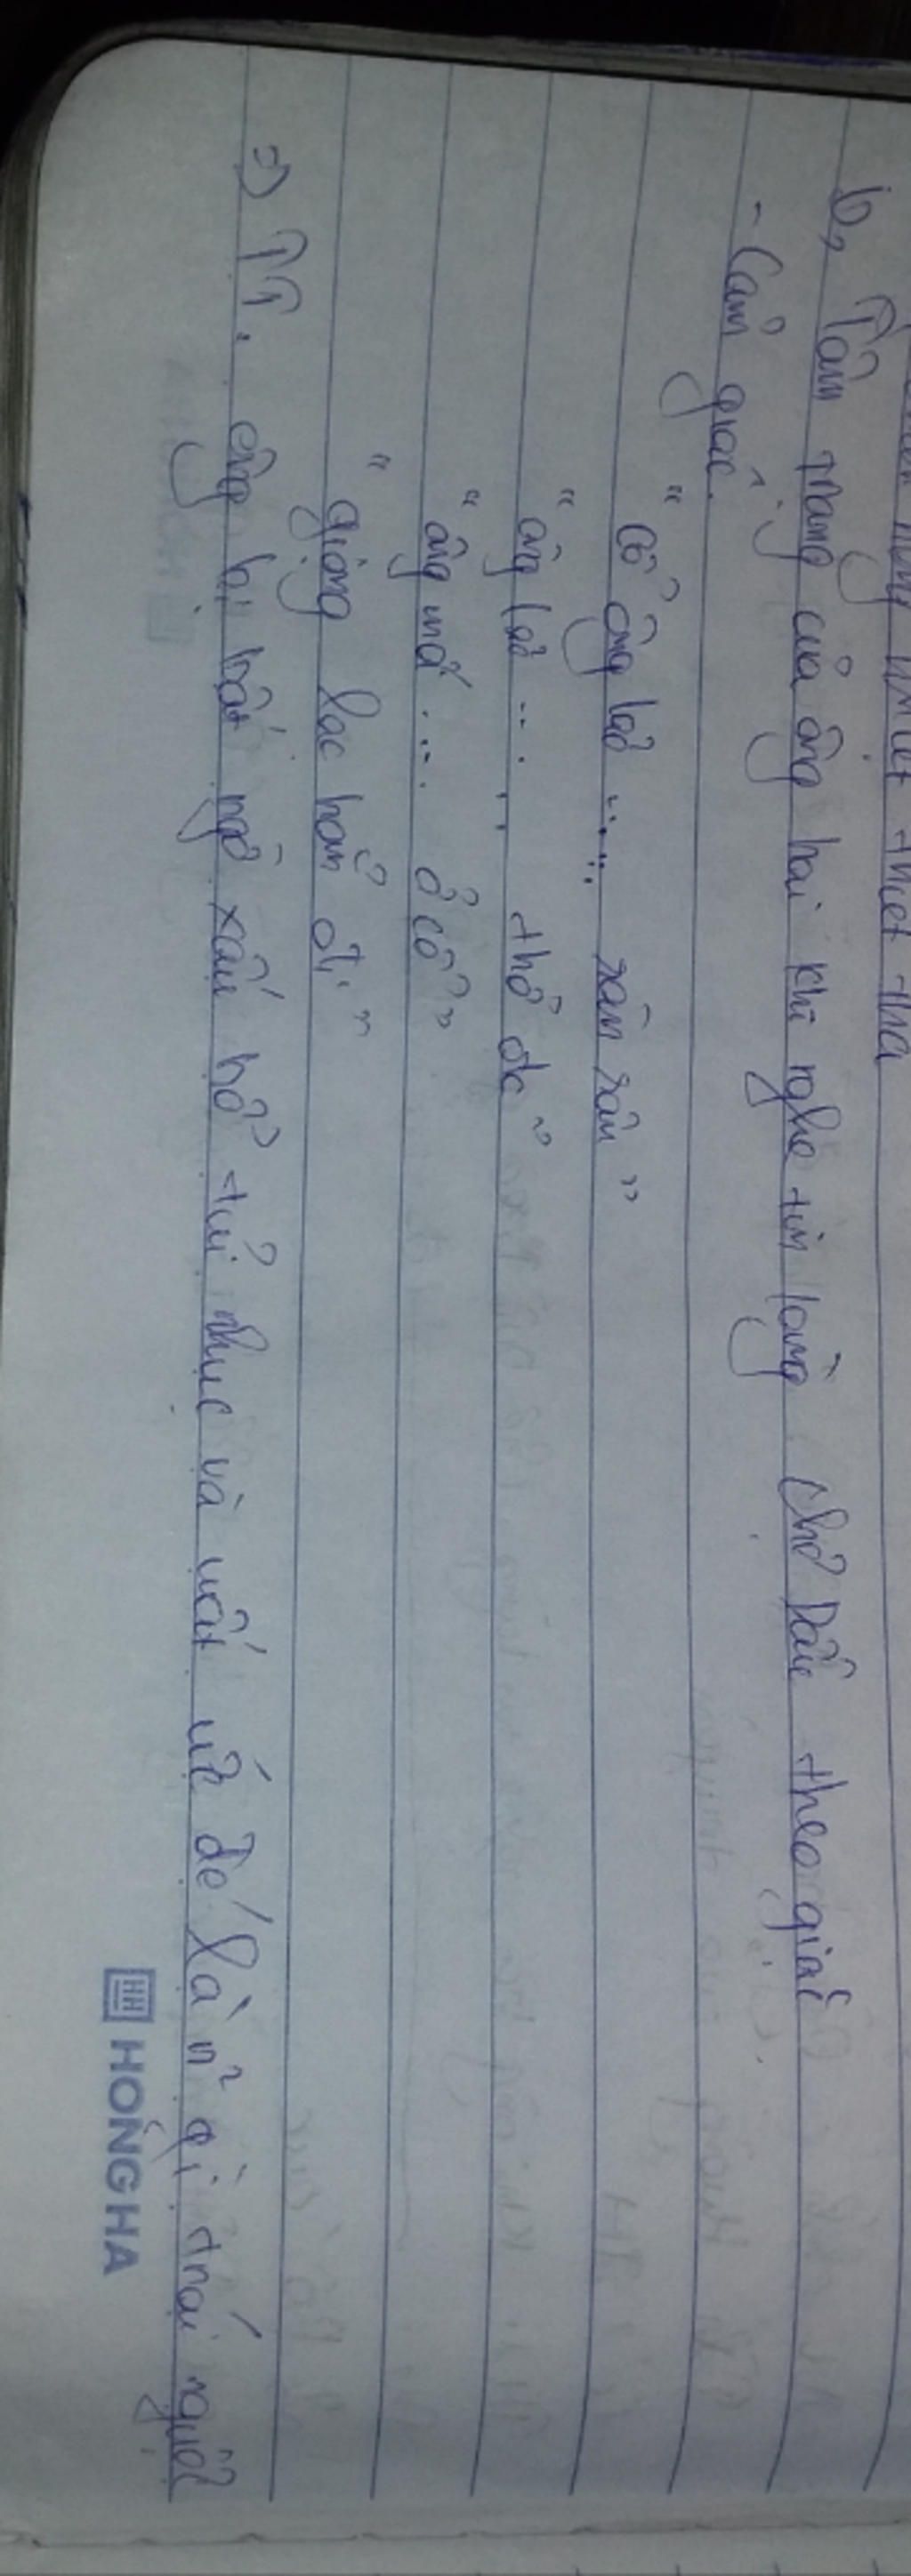 nhiệt thiết tha
b, Tâm trạng của ông hai khi nghe tin làng chợ Dầu theo giặc
- Cảm giác.
" Cổ ông lão ..... rân rân "
" ông lão .... thở đc "
" ông mớ .... ở cổ "
" giọng lạc hẳn đi "
=> TT. ông bị bất ngờ xấu hổ tủi nhục và uất ức
HONG HA